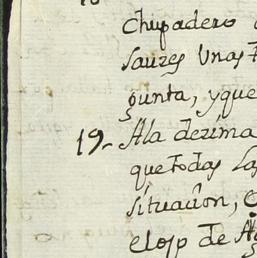 chupadero
sauzes Unas
gunta, yque
19- Ala dezima
quetodas las
situacion,
elojp de